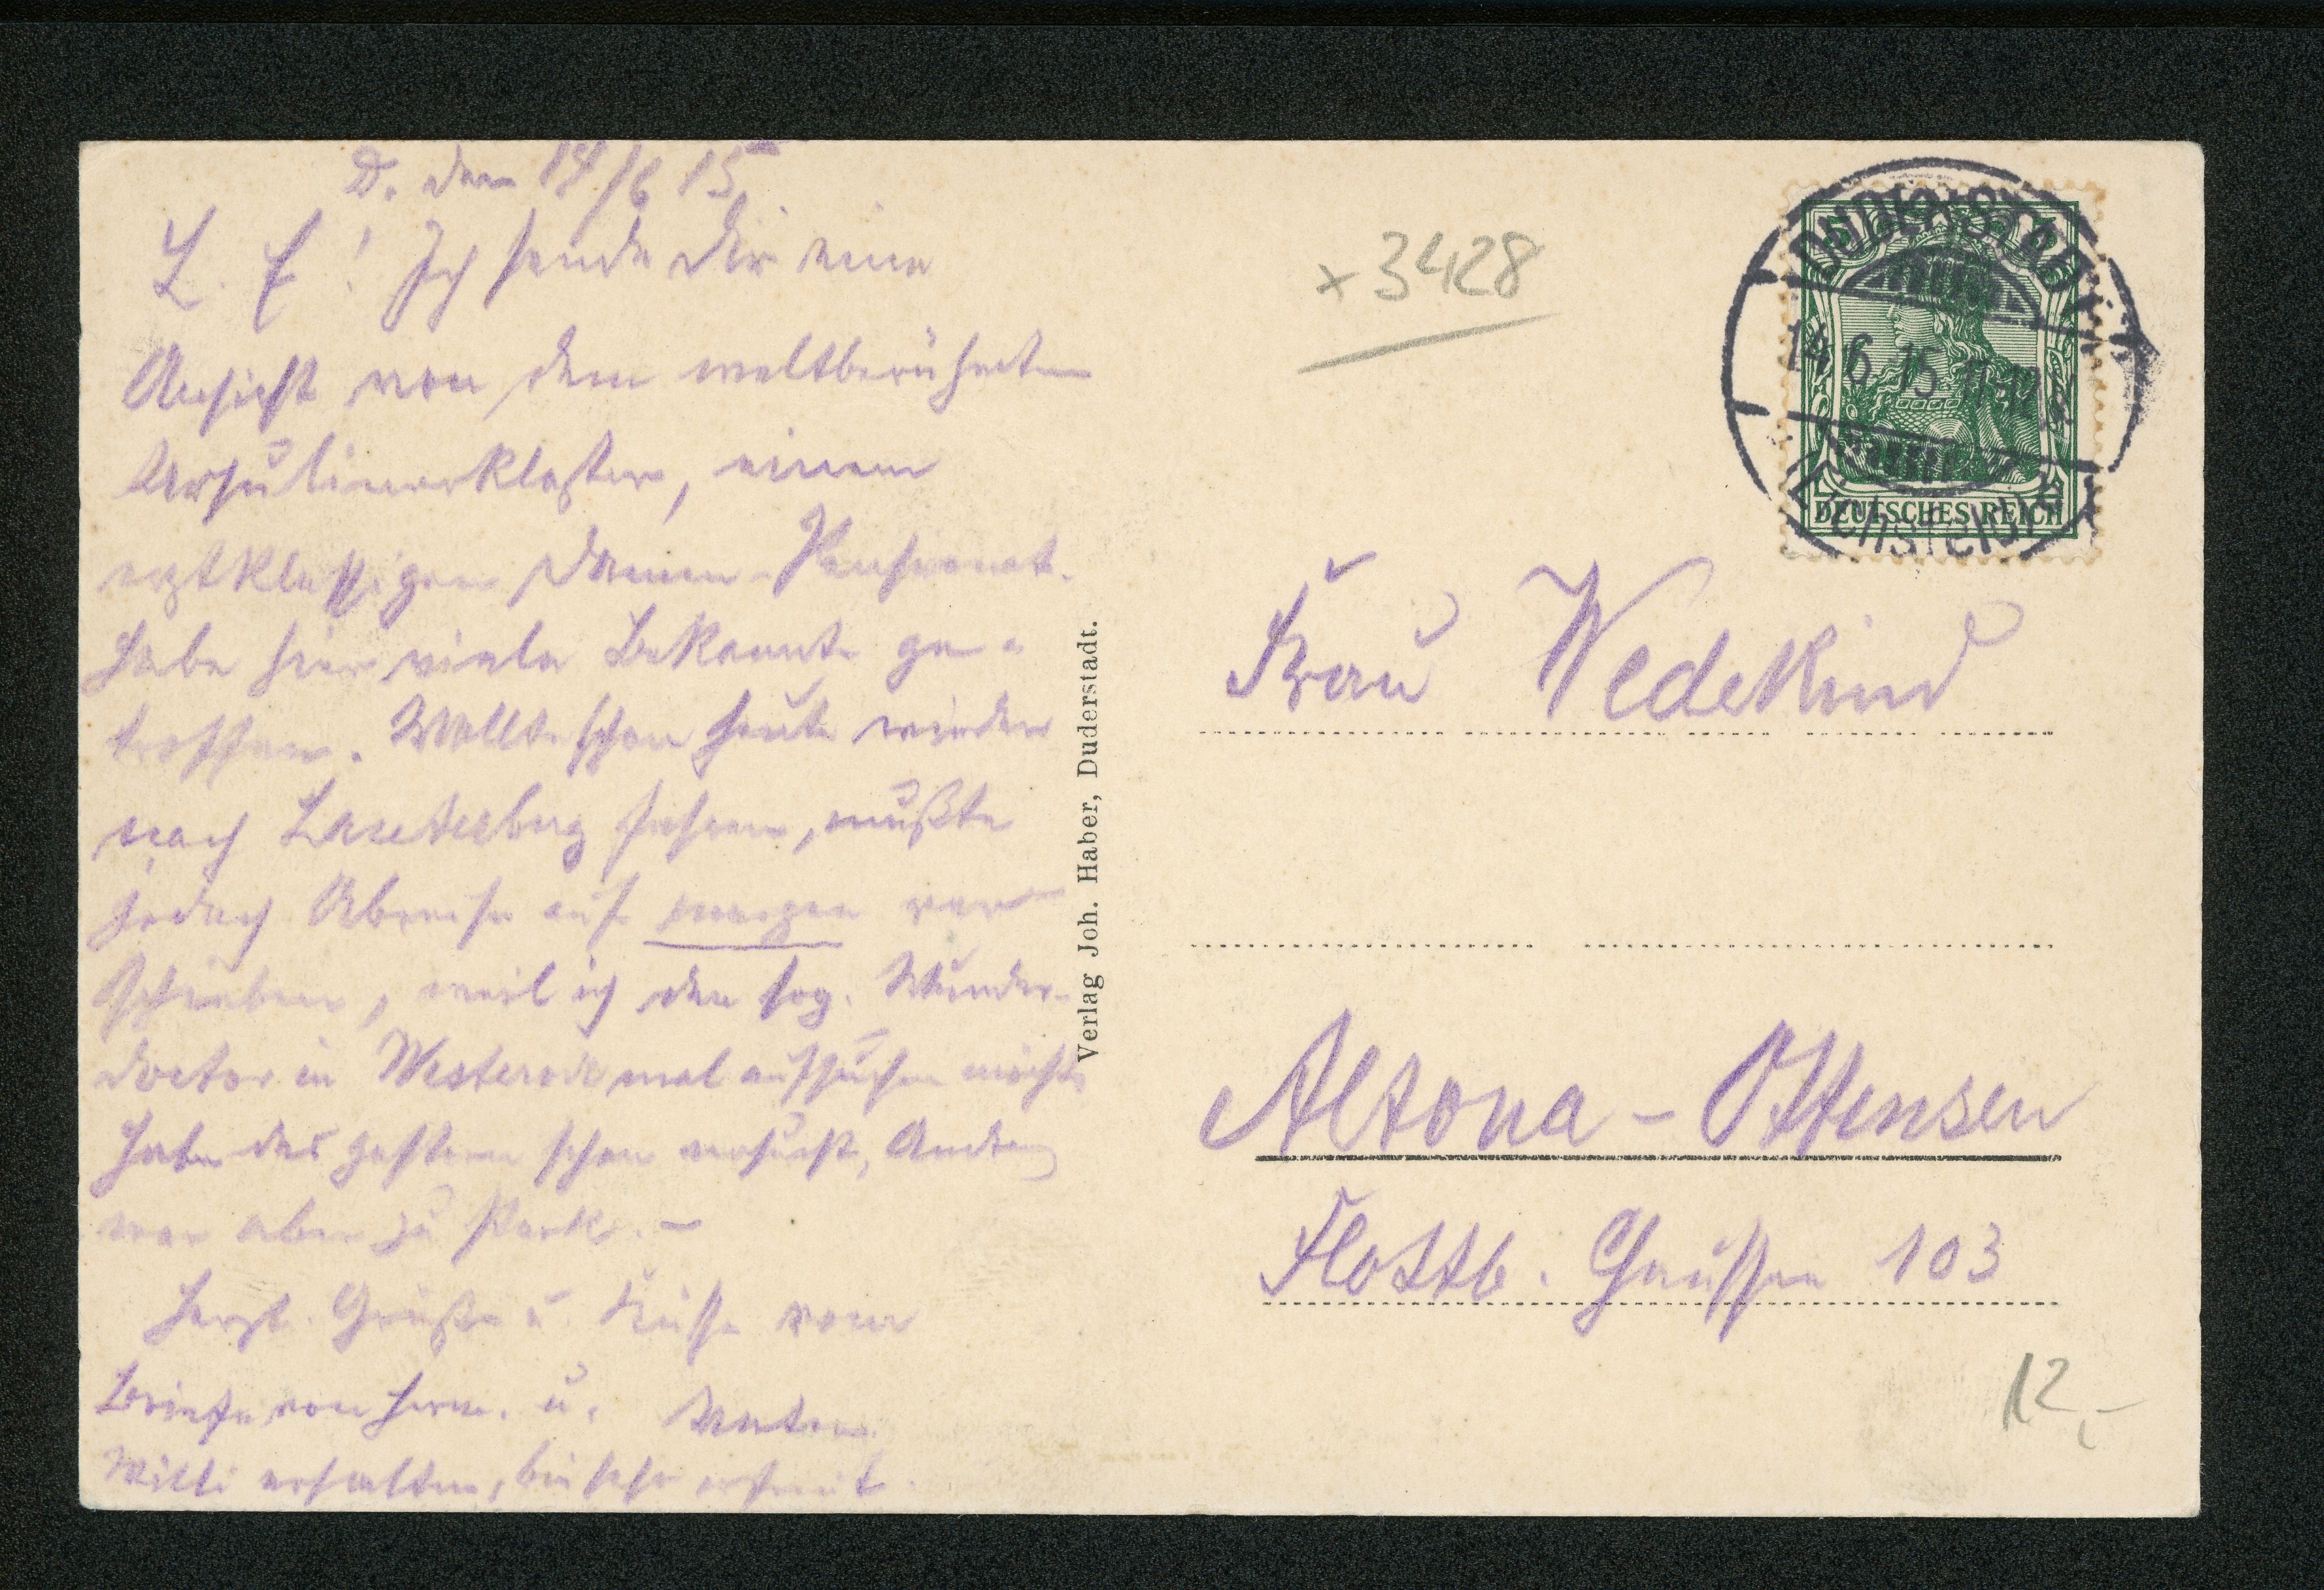 D. den 14/6 15.
L. E! Ich sende Dir eine
Ansicht von dem weltberühmten
Ursulinerkloster, einem
erstklassigen Damen-Pensionat.
Habe hier viele Bekannte ge-
troffen. Wollte schon heute wieder
nach Lauterberg fahren, mußte
jedoch Abreise auf morgen ver
schieben, weil ich den sog. Wunder-
doctor in Westerode mal aufsuchen möchte
Habe das gestern schon versucht, Andrang
war aber zu stark. –
Herzl. Grüße u. Küsse vom
Briefe von Herm. u. Vater
Willi erhalten, bin sehr erfreut.
Verlag Joh. Haber, Duderstadt.
x 3428
DUDERSTADT
14.6.15.11-12
(Eichsfeld)
DEUTSCHES REICH
Frau Wedekind
Altona - Ottensen
Flottb. Chaussee 103
12,-